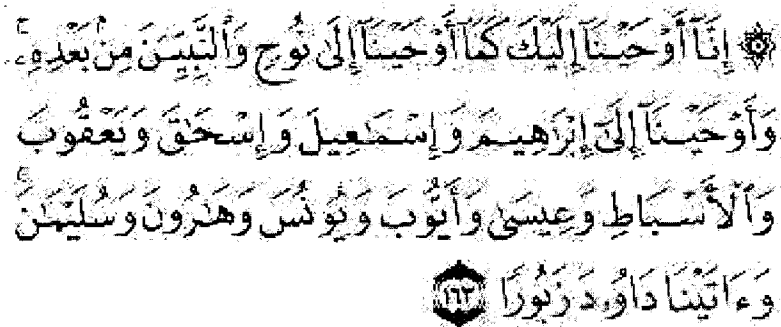 ۞ إِنَّآ أَوْحَيْنَآ إِلَيْكَ كَمَآ أَوْحَيْنَآ إِلَىٰ نُوحٍ وَٱلنَّبِيِّـۧنَ مِنۢ بَعْدِهِۦۚ
وَأَوْحَيْنَآ إِلَىٰٓ إِبْرَٰهِيمَ وَإِسْمَٰعِيلَ وَإِسْحَٰقَ وَيَعْقُوبَ
وَٱلْأَسْبَاطِ وَعِيسَىٰ وَأَيُّوبَ وَيُونُسَ وَهَٰرُونَ وَسُلَيْمَٰنَۚ
وَءَاتَيْنَا دَاوُۥدَ زَبُورًا ۝١٦٣